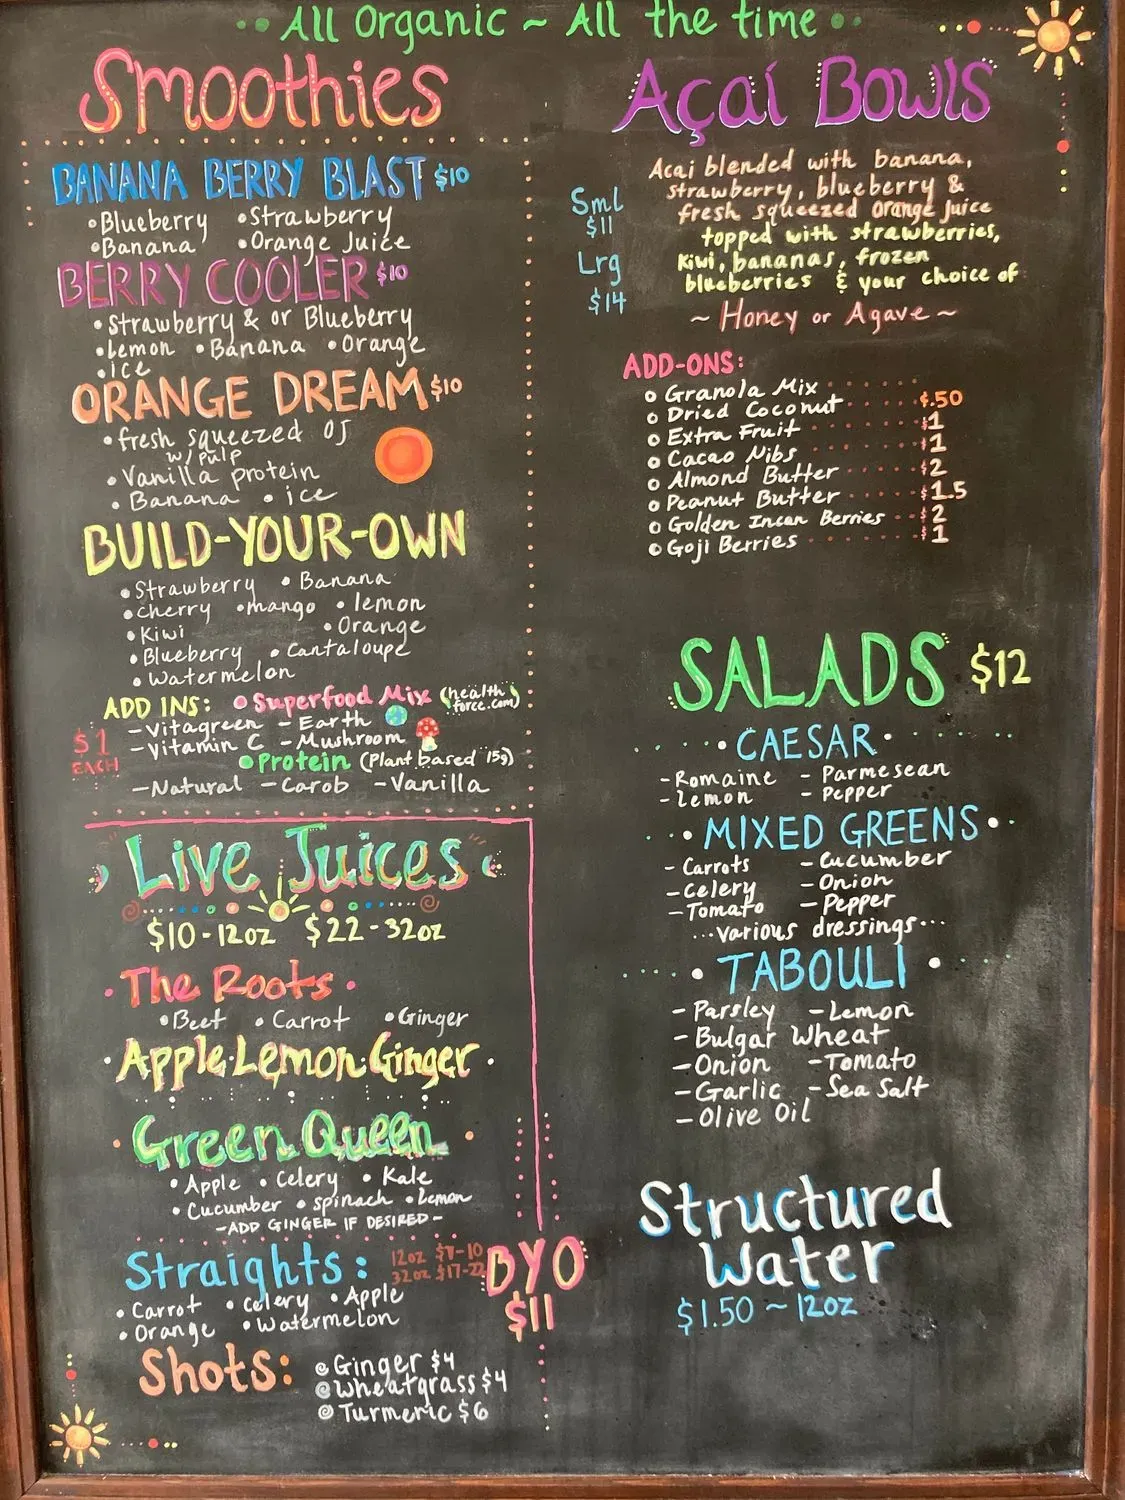 All Organic ~ All the time
Smoothies
BANANA BERRY BLAST $10
•Blueberry •Strawberry
•Banana •Orange Juice
BERRY COOLER $10
•Strawberry & or Blueberry
•Lemon •Banana •Orange
•Ice
ORANGE DREAM $10
•fresh squeezed OJ
w/pulp
•Vanilla protein
•Banana •ice
BUILD-YOUR-OWN
•Strawberry •Banana
•cherry •mango •lemon
•Kiwi •Orange
•Blueberry •Cantaloupe
•Watermelon
ADD INS: •Superfood Mix (health force.com)
$1 EACH
-Vitagreen -Earth
-Vitamin C -Mushroom
•Protein (Plant based 15g)
-Natural -Carob -Vanilla
Live Juices
$10-12oz $22-32oz
•The Roots•
•Beet •Carrot •Ginger
•Apple•Lemon•Ginger•
•Green Queen•
•Apple •Celery •Kale
•Cucumber •spinach •Lemon
-ADD GINGER IF DESIRED-
Straights: 12oz $7-10
32oz $17-22
•Carrot •celery •Apple
•Orange •Watermelon
BYO
$11
Shots: Ginger $4
Wheatgrass $4
Turmeric $6
Açaí Bowls
Sml
$11
Lrg
$14
Acai blended with banana,
strawberry, blueberry &
fresh squeezed orange juice
topped with strawberries,
Kiwi, bananas, frozen
blueberries & your choice of
~ Honey or Agave ~
ADD-ONS:
Granola Mix
Dried Coconut $.50
Extra Fruit $1
Cacao Nibs $1
Almond Butter $2
Peanut Butter $1.5
Golden Incan Berries $2
Goji Berries $1
SALADS $12
•CAESAR•
-Romaine -Parmesean
-Lemon -Pepper
•MIXED GREENS•
-Carrots -Cucumber
-Celery -Onion
-Tomato -Pepper
...various dressings...
•TABOULI•
-Parsley -Lemon
-Bulgar Wheat
-Onion -Tomato
-Garlic -Sea Salt
-Olive Oil
Structured
Water
$1.50 ~ 12oz